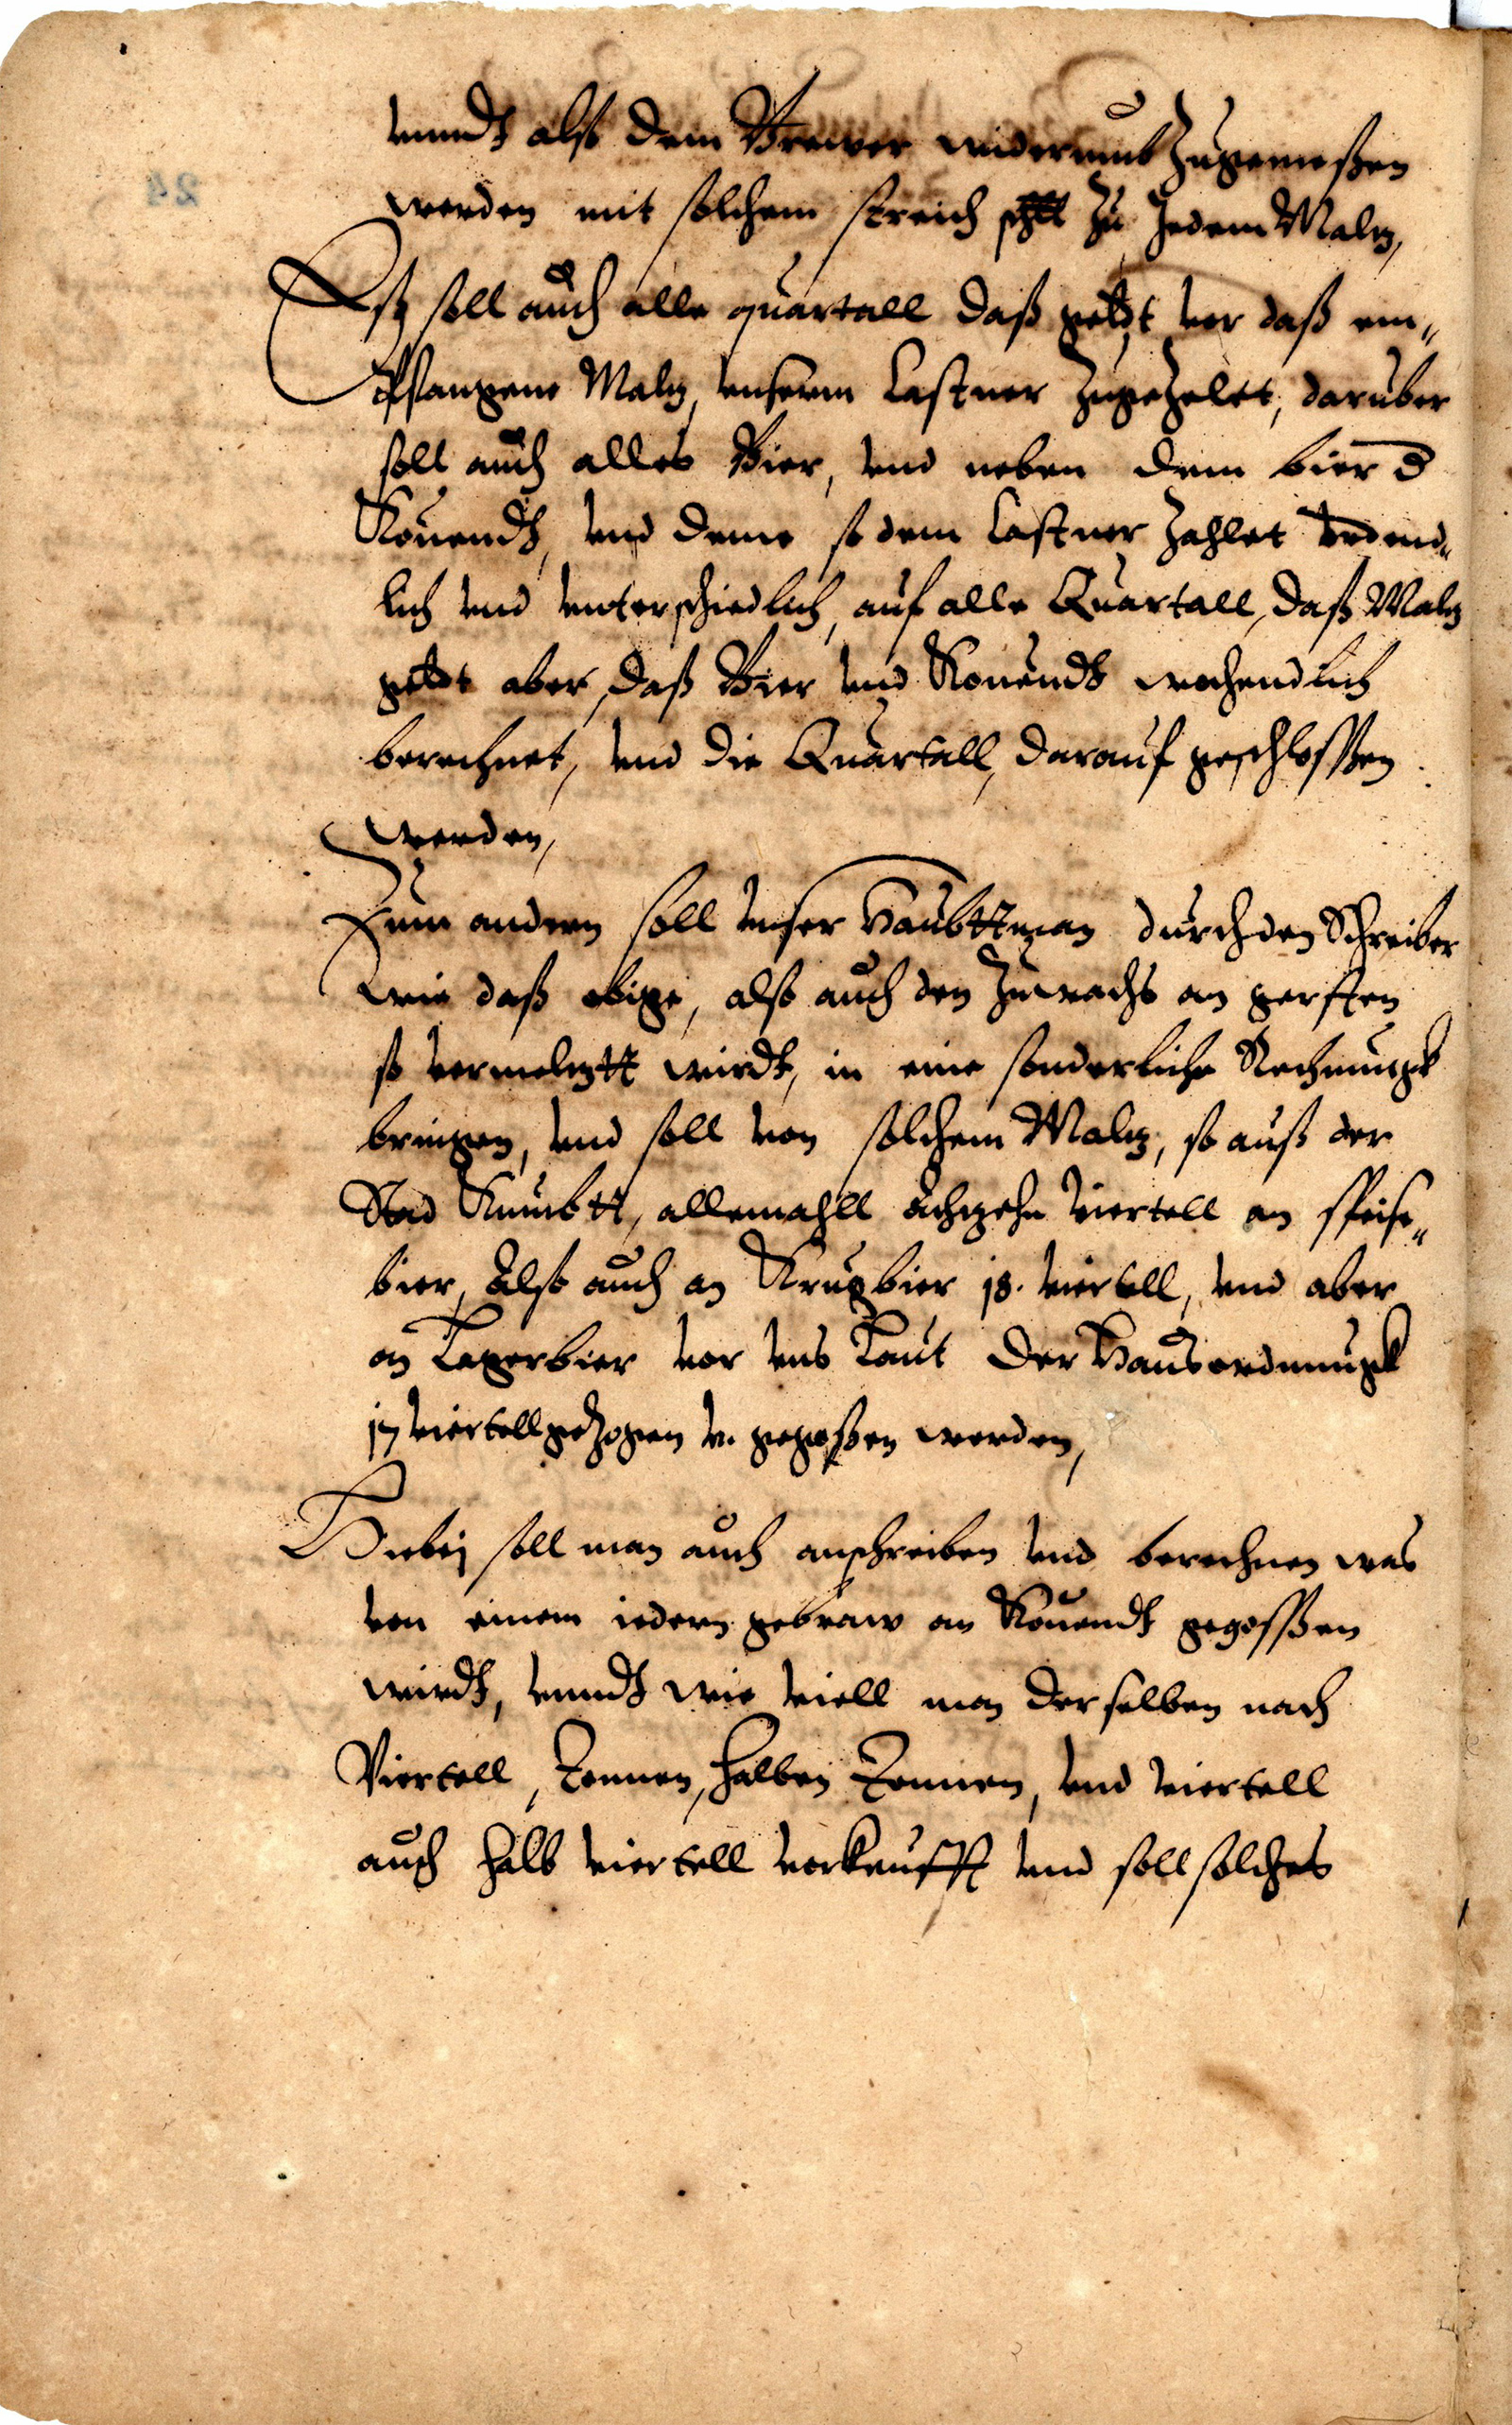 vnndt alß dem Brewer widerumb Zugemeßen
werden mit solchem streich zu Jedem Maltz,
Eß soll auch alle quartall daß geldt vor daß em„
pfangene Maltz, vnserm Castner zugezelet, daruber
soll auch alles Bier, vnd neben dem bier d
Kouendt, vnd deme so dem Castner zahlet ordend„
lich vnd vnterschiedlich, auf alle Quartall, daß Maltz
geldt aber, daß Bier vnd Kouendt wochendlich
berechnet, vnd die Quartall, darauf geschlossen
werden,
Zum andern soll vnser Haubttman durch den Schreiber
wie daß obige, alß auch den Zuwachs an gersten
so vermeltztt wirdt, in eine sonderliche Rechnungk
bringen, vnd soll von solchem Maltz, so auß der
Stad Kumbtt, allemahll achtzehn viertell an speise„
bier, Alß auch an Krugbier 18. viertell, vnd aber
an Lagerbier vor vns Laut der Hausordnungk
17 viertell gezogen v. gegoßen werden,
Hiebej soll man auch anschreiben vnd berechnen was
von einem iedern gebraw an Kouendt gegossen
wirdt, vnndt wie viell man derselben nach
Viertell, Tonnen, halben Tonnen, vnd viertell
auch halb viertell vorkaufft vnd soll solches
24